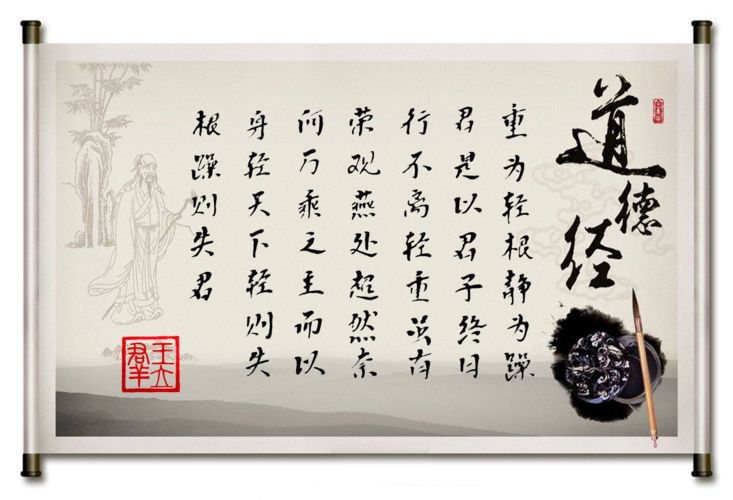 道德经
重为轻根静为躁
君是以君子终日
行不离轻重虽有
荣观燕处超然奈
何万乘之主而以
身轻天下轻则失
根躁则失君
王立群